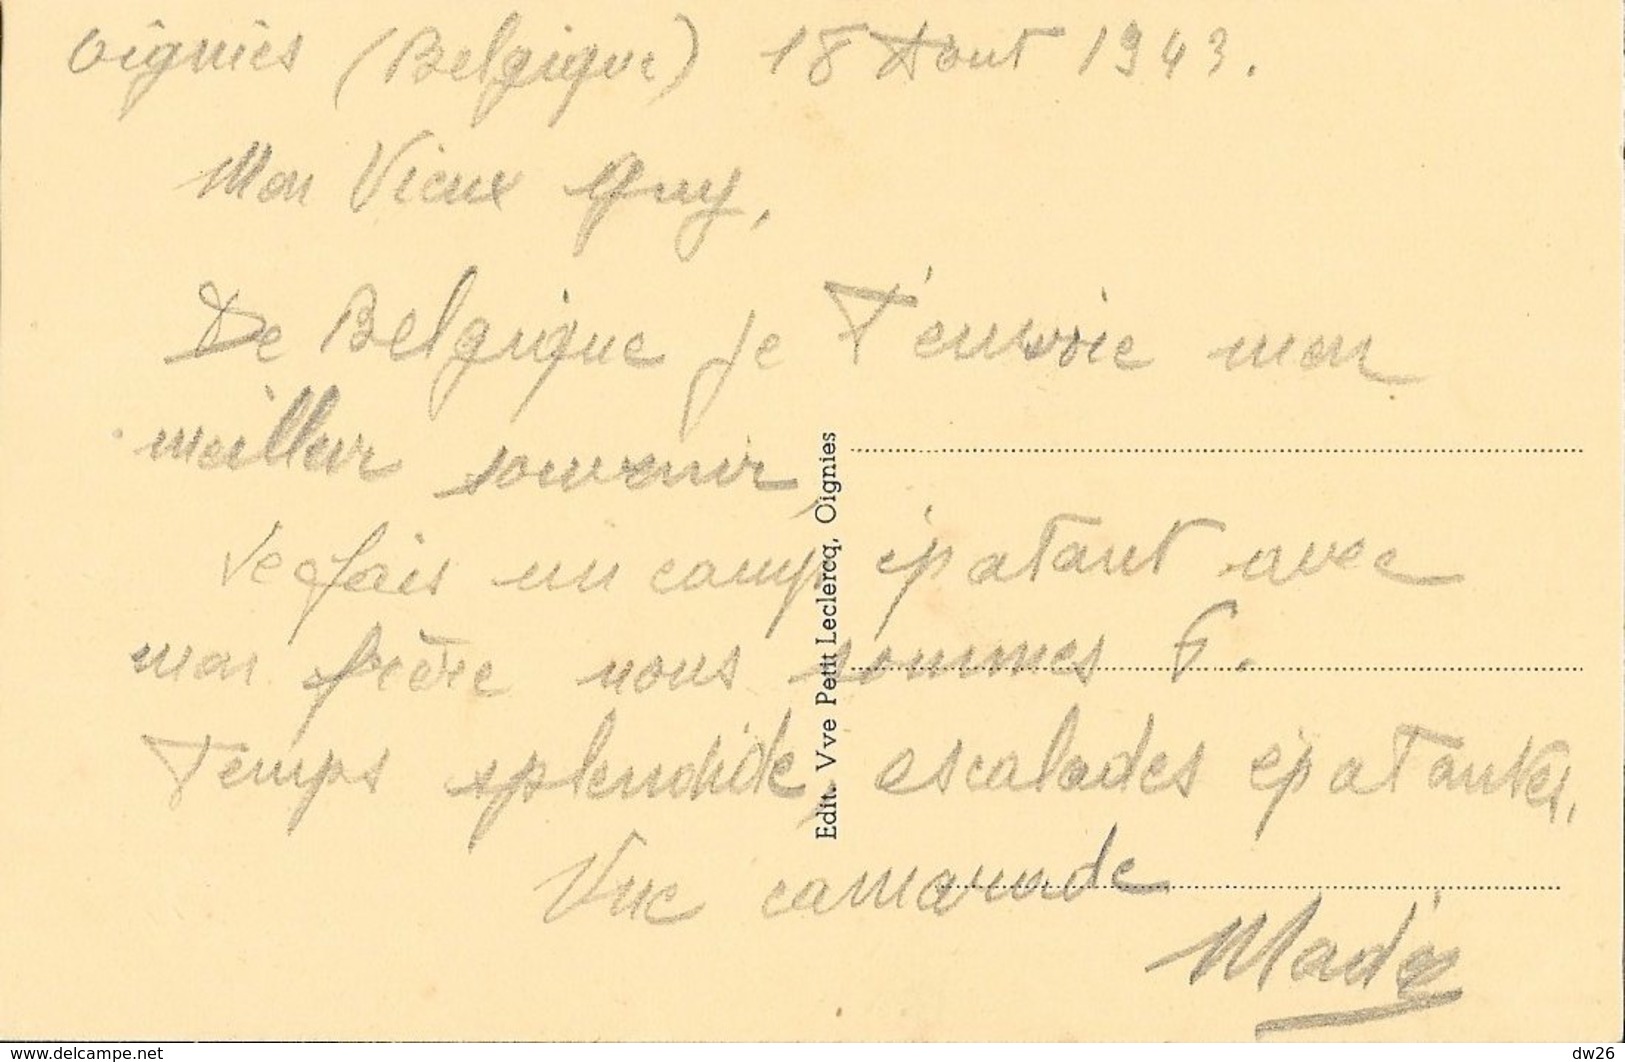 Oignies (Belgique) 18 Aout 1943.
Mon Vieux Guy,
De Belgique je t'envoie mon
meilleur souvenir,
Je fais un camp épatant avec
mon frère nous sommes 6.
Temps splendide, escalades épatantes,
Une camarade
Mady
Edit. Vve Petit Leclercq, Oignies
www.delcampe.net
dw26